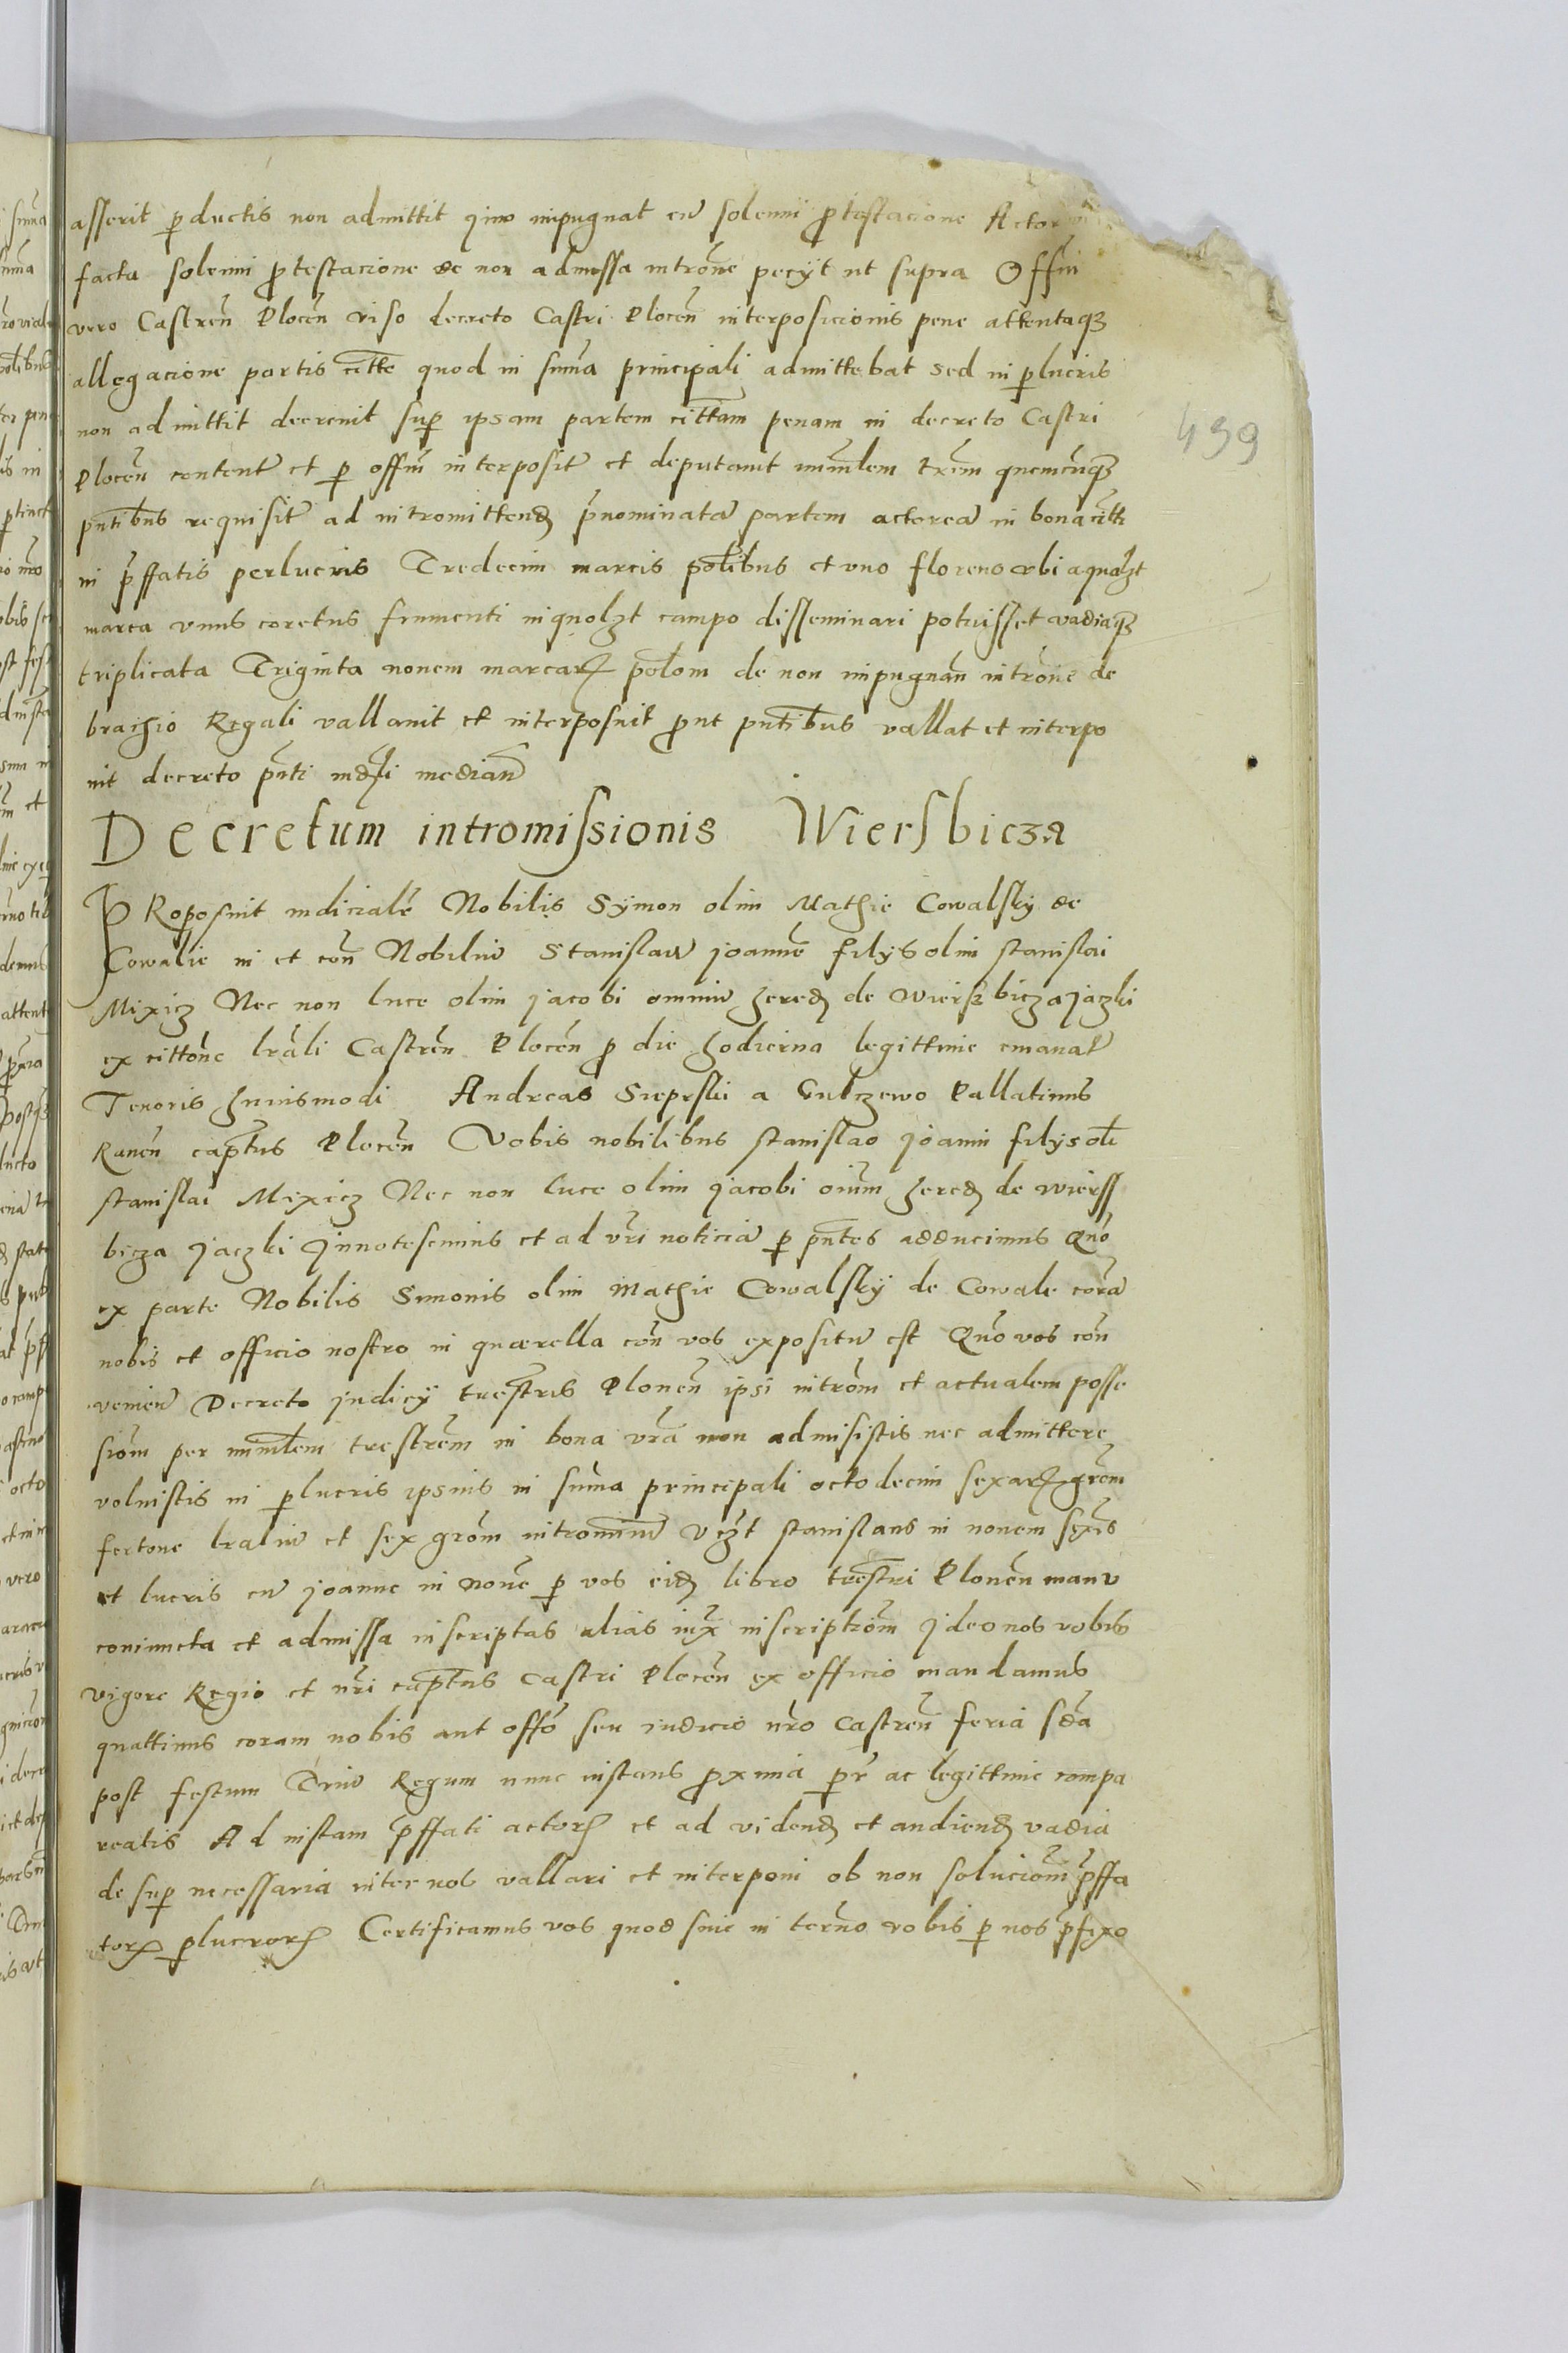 asserit p ductis non admittit ymo inpugnat cu solenni protestacione Actor
facta solenni protestacione de non admissa introne pecyt ut supra Offm
vero Castren Plocen viso decreto Castri Plocen interposicionis pene attentaqz
allegacione partis citte quod in suma principali admittebat sed in plucris
non admittit decrevit sup ipsam partem cittam penam in decreto Castri
Plocen content et p offm interposit et deputavit mnrlem trrm quemcuqz
pntibus requisit ad intromittend pnominata partem actorea in bona citti
in pffatis perlucris Tredecim marcis polibus et uno floreno
marca unus coretus frumenti in quolzt campo disseminari potuisset vadiaqz
triplicata Triginta novem marcar polom de non inpugnan introne de
brachio Regali vallavit et interposuit prout pntibus vallat et interpo
nit decreto pnti mdli median
Decretum intromissionis Wiersbicza
PRoposuit iudicialr Nobilis Symon olim Mathie Cowalsky de
Cowalie in et con Nobiliu Stanislau Joanne filys olim Stanislai
Mixicz Nec non Luce olim Jacobi omniu hered de Wierszbicza Jaczki
ex cittone lrali Castren Plocen p die hodierna legittime emanat
Tenoris huiusmodi Andreas Sieprski a Gulczewo Pallatinus
Raven captus Plocen Vobis nobilibus Stanislao Joanni filys oli
Stanislai Mixicz Nec non Luce olim Jacobi oium hered de Wierss
bicza Jaczki Innotescimus et ad vri noticia p pntes adducimus Quo
ex parte Nobilis Simonis olim Mathie Cowalsky de Cowale cora
nobis et officio nostro in quaerella con vos expositu est Quo vos con
venien Decreto judicy trestris Plonen ipsi introm et actualem posse
siom per mnrlem trestrem in bona vra non admisistis nec admittere
voluistis in plucris ipsius in suma principali octodecim sexar grom
fertone lraliu et sex grom introminu Vczt Stanislaus in novem sexis
et lucris cu Joanne in nove p vos eid libro trestri Plonen manu
coniuncta et admissa inscriptas alias iux inscriptiom Ideo nos vobis
vigore Regio et nri captus Castri Plocen ex officio mandamus
quattinus coram nobis aut offo seu iudicio nro Castren feria sda
post festum Triu Regum nunc instans proxima pr ac legittime compa
reatis Ad instam pffati actor et ad vidend et audiend vadia
de sup necessaria inter nos vallari et interponi ob non soluciom pffa
tor plucror Certificamus vos quod sive in terno vobis p nos pfixo
499